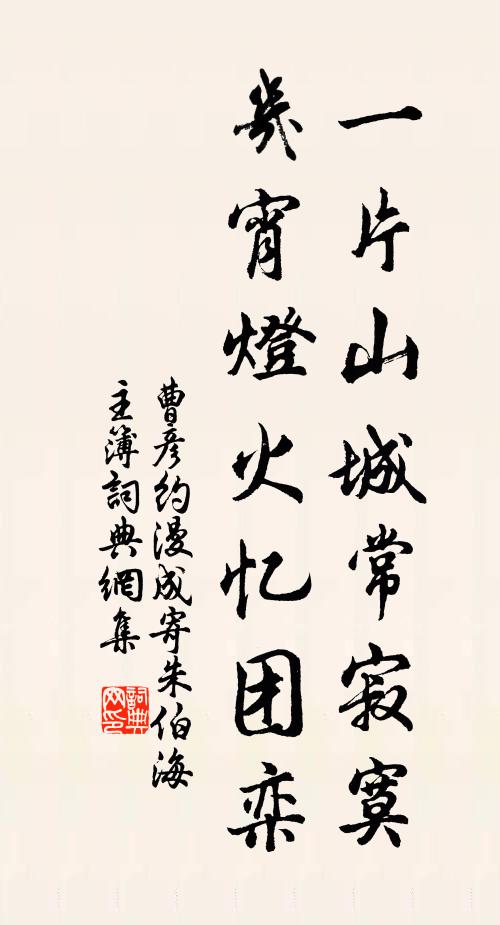 一片山城常寂寞
幾宵燈火忆团栾
曹彦約漫成寄朱伯海
主簿詞典網集
詞典网印